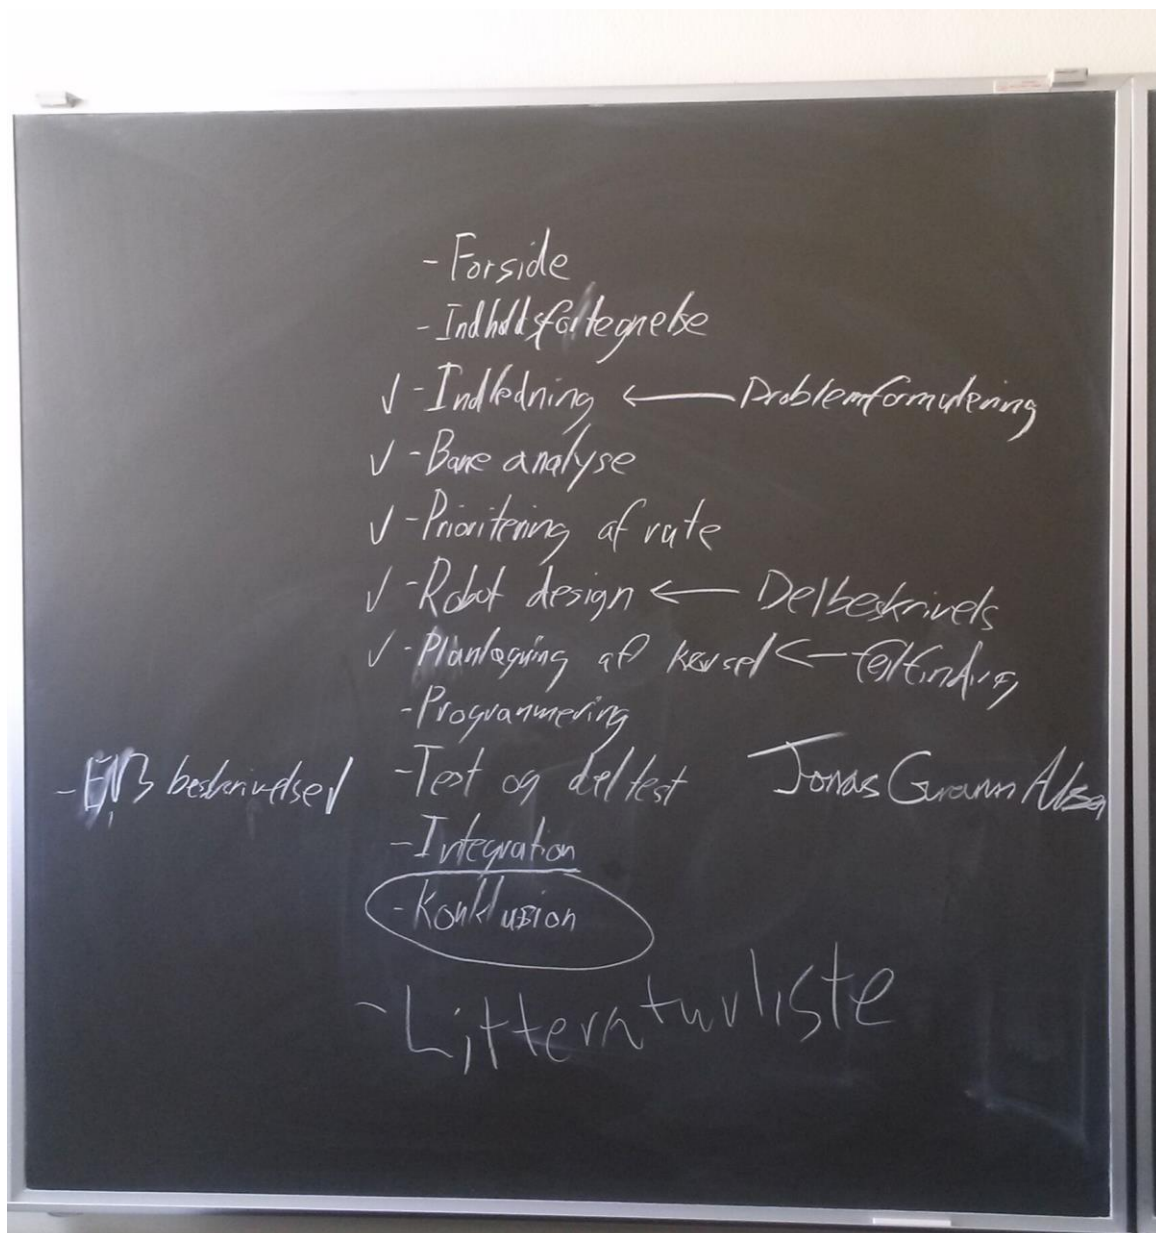 - Forside
- Indholdsfortegnelse
√ - Indledning ← Problemformulering
√ - Bane analyse
√ - Prioritering af rute
√ - Robot design ← Delbeskrivels
√ - Planlægning af kørsel ← fejlfinding
- Programmering
- beskrivelse √ - Test og deltest Jonas
- Integration
- Konklusion
- Litteraturliste